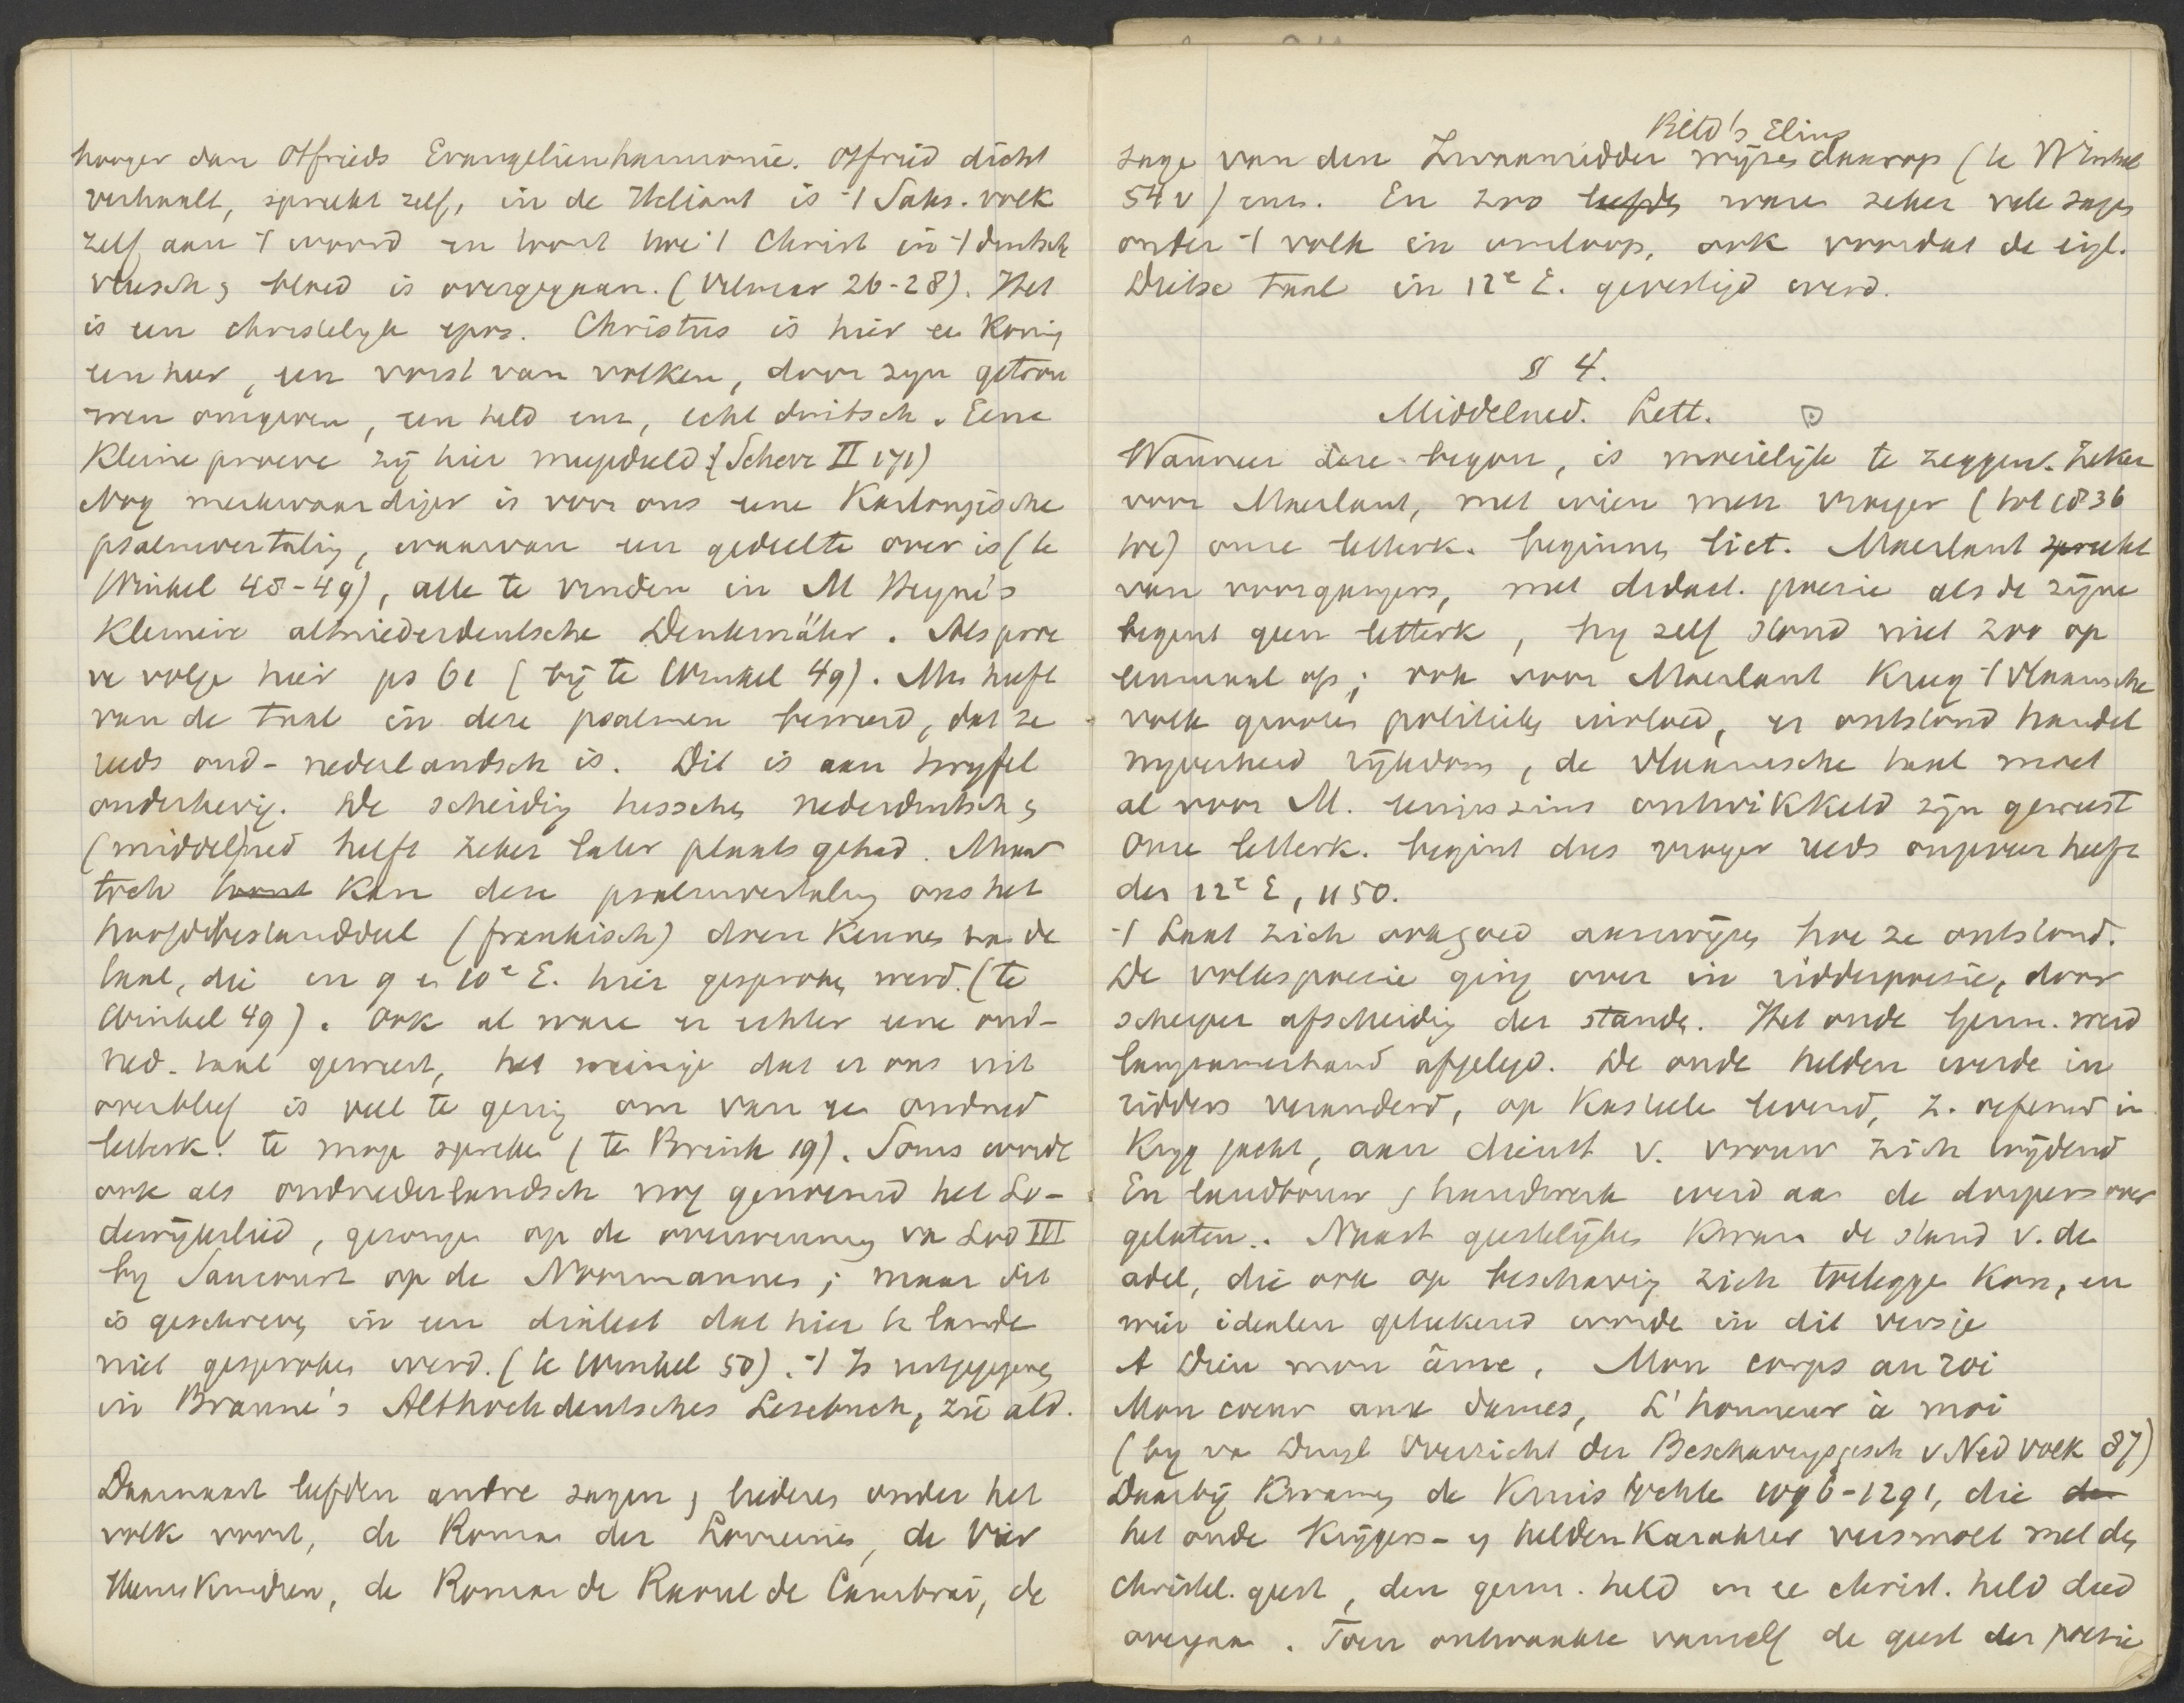 hooger dan Otfrieds Evangelienharmonie. Otfried dicht
verhaalt, spreekt zelf, in de Heliant is 't Saks. volk
zelf aan 't woord en hoort hoe 't Christ in 't duitsch
vleesch & bloed is overgegaan. (Vilmar 26-28). Het
is een christelyk epos. Christus is hier ee Koning
een heer, een vorst van volken, door zyn getrou
wen omgeven, een held enz, echt duitsch. Eene
Kleine proeve zij hier meegedeeld (Scherr II 171)
Nog merkwaardiger is voor ons eene Karlongische
psalmvertaling, waarvan een gedeelte over is (te
Winkel 48-49), alle te vinden in M Heyne's
Kleinere altniederdeutsche Denkmäler. Als proe
ve volge hier ps 61 (bij te Winkel 49). Men heeft
van de taal in deze psalmen beweerd, dat ze
reeds oud-nederlandsch is. Dit is aan twyfel
onderhevig. De scheiding tusschen nederduitsch &
(middel)ned heeft zeker later plaats gehad. Maar
toch kan deze psalmvertaling ons het
hoofdbestanddeel (frankisch) doen Kennen van de
taal, die in 9 en 10e E. hier gesproken werd. (te
Winkel 49). Ook al ware er echter eene oud-
ned. taal geweest, het weinige dat er ons uit
overbleef is veel te gering om van ee oudned
letterk. te moge spreken (te Brink 19). Soms wordt
ook als oudnederlandsch nog genoemd het Lo-
dewijkslied, gezongen op de overwinning van Lod III
by Saucourt op de Noormannen; maar dit
is geschreven in een dialect dat hier te lande
niet gesproken werd. (te Winkel 50). 't Is uitgegeven
in Braune's Althochdeutsches Lesebuch, zie ald.
Daarnaast leefden andre sagen & liederen onder het
volk voort, de Roman der Lorreinen, de Vier
Heemskindren, de Roman de Raoul de Cambrai, de
sage van den Zwaanridder wijzen daarop (te Winkel
54 v) enz. En zoo waren zeker vele sagen
onder 't volk in omloop, ook voordat de eigl.
Dietse taal in 12e E. gevestigd werd.
§ 4.
Middelned. Lett.
Wanneer deze begon, is moeielijk te zeggen. Zeker
voor Maerlant, met wien men vroeger (tot 1836
toe) onze letterk. beginnen liet. Maerlant spreekt
van voorgangers, met didact. poezie als de zijne
begint geen letterk, hy zelf stond niet zoo op
eenmaal op; ook voor Maerlant Kreeg 't Vlaamsche
volk grooten politieken invloed, er ontstond handel
nyverheid rijkdom, de Vlaamsche taal moet
al voor M. eenigszins ontwikkeld zijn geweest
Onze letterk. begint dus vroeger reeds ongeveer helft
der 12e E, 1150.
't Laat zich ook goed aanwijzen hoe ze ontstond.
De volkspoezie ging over in ridderpoezie, door
scherper afscheiding der standen. Het oude Germ. werd
langzamerhand afgelegd. De oude helden werde in
ridders veranderd, op Kasteele levend, z. oefenend in
Kryg jacht, aan dienst v. vrouw zich wijdend
En landbouw & handwerk werd aan de dorpers over
gelaten. Naast geestelijken kwam de stand v. de
adel, die ook op beschaving zich toelegge kon, en
wier idealen geteekend worde in dit versje
A Dieu mon âme, Mon corps au roi
Mon coeur aux dames, L'honneur à moi
(by va Duyl Overzicht der Beschavingsgesch v Ned volk 87)
Daarbij kwamen de Kruistochte 1096-1291, die
het oude Krijgers- & helden Karakter versmolt met den
christel. geest, den germ. held in ee christ. held deed
overgaan. Toen ontwaakte vanzelf de geest der poezie